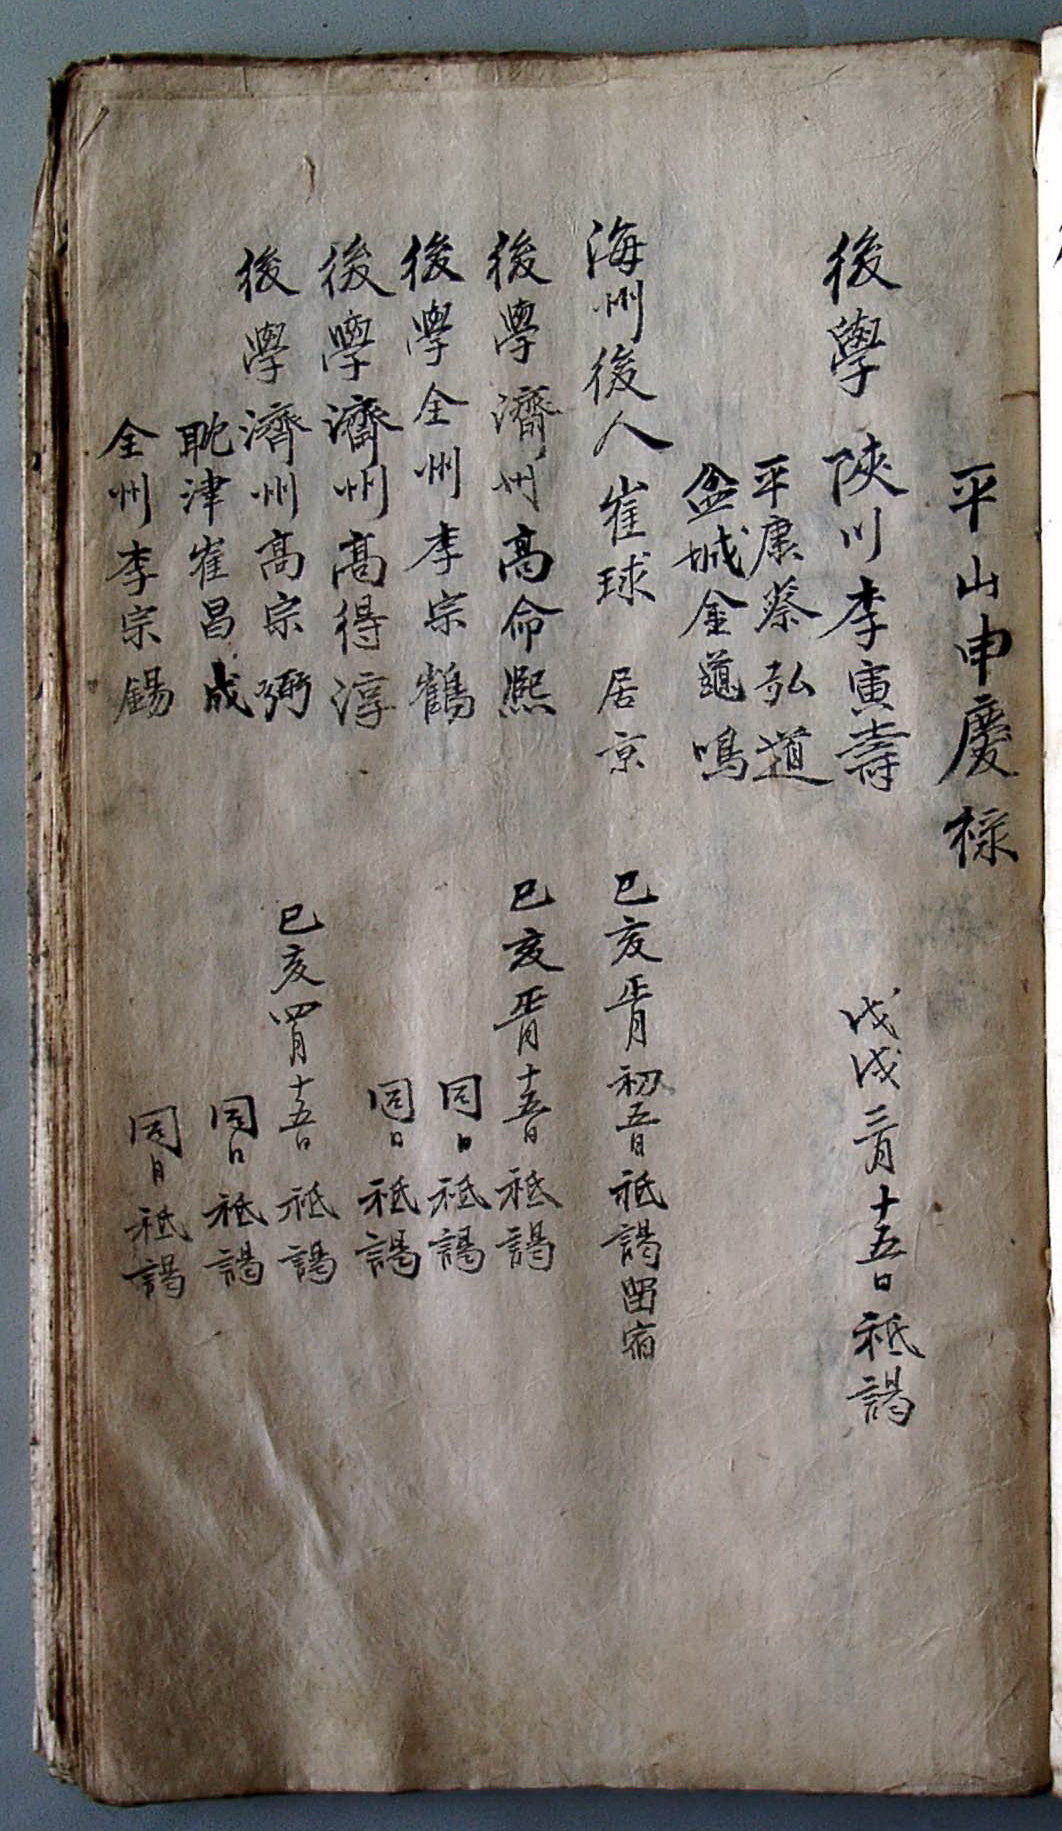 平山申慶祿
後學 陜川李寅壽 戊戌三月十五日祗謁
平康蔡弘道
盆城金道鳴
海州後人崔球 居京 己亥正月初五日祗謁留宿
後學濟州高命熙 己亥正月十五日祗謁
後學全州李宗鶴 同日祗謁
後學濟州高得淳 同日祗謁
後學濟州高宗弼 己亥四月十五日祗謁
耽津崔昌成 同日祗謁
全州李宗錫 同日祗謁